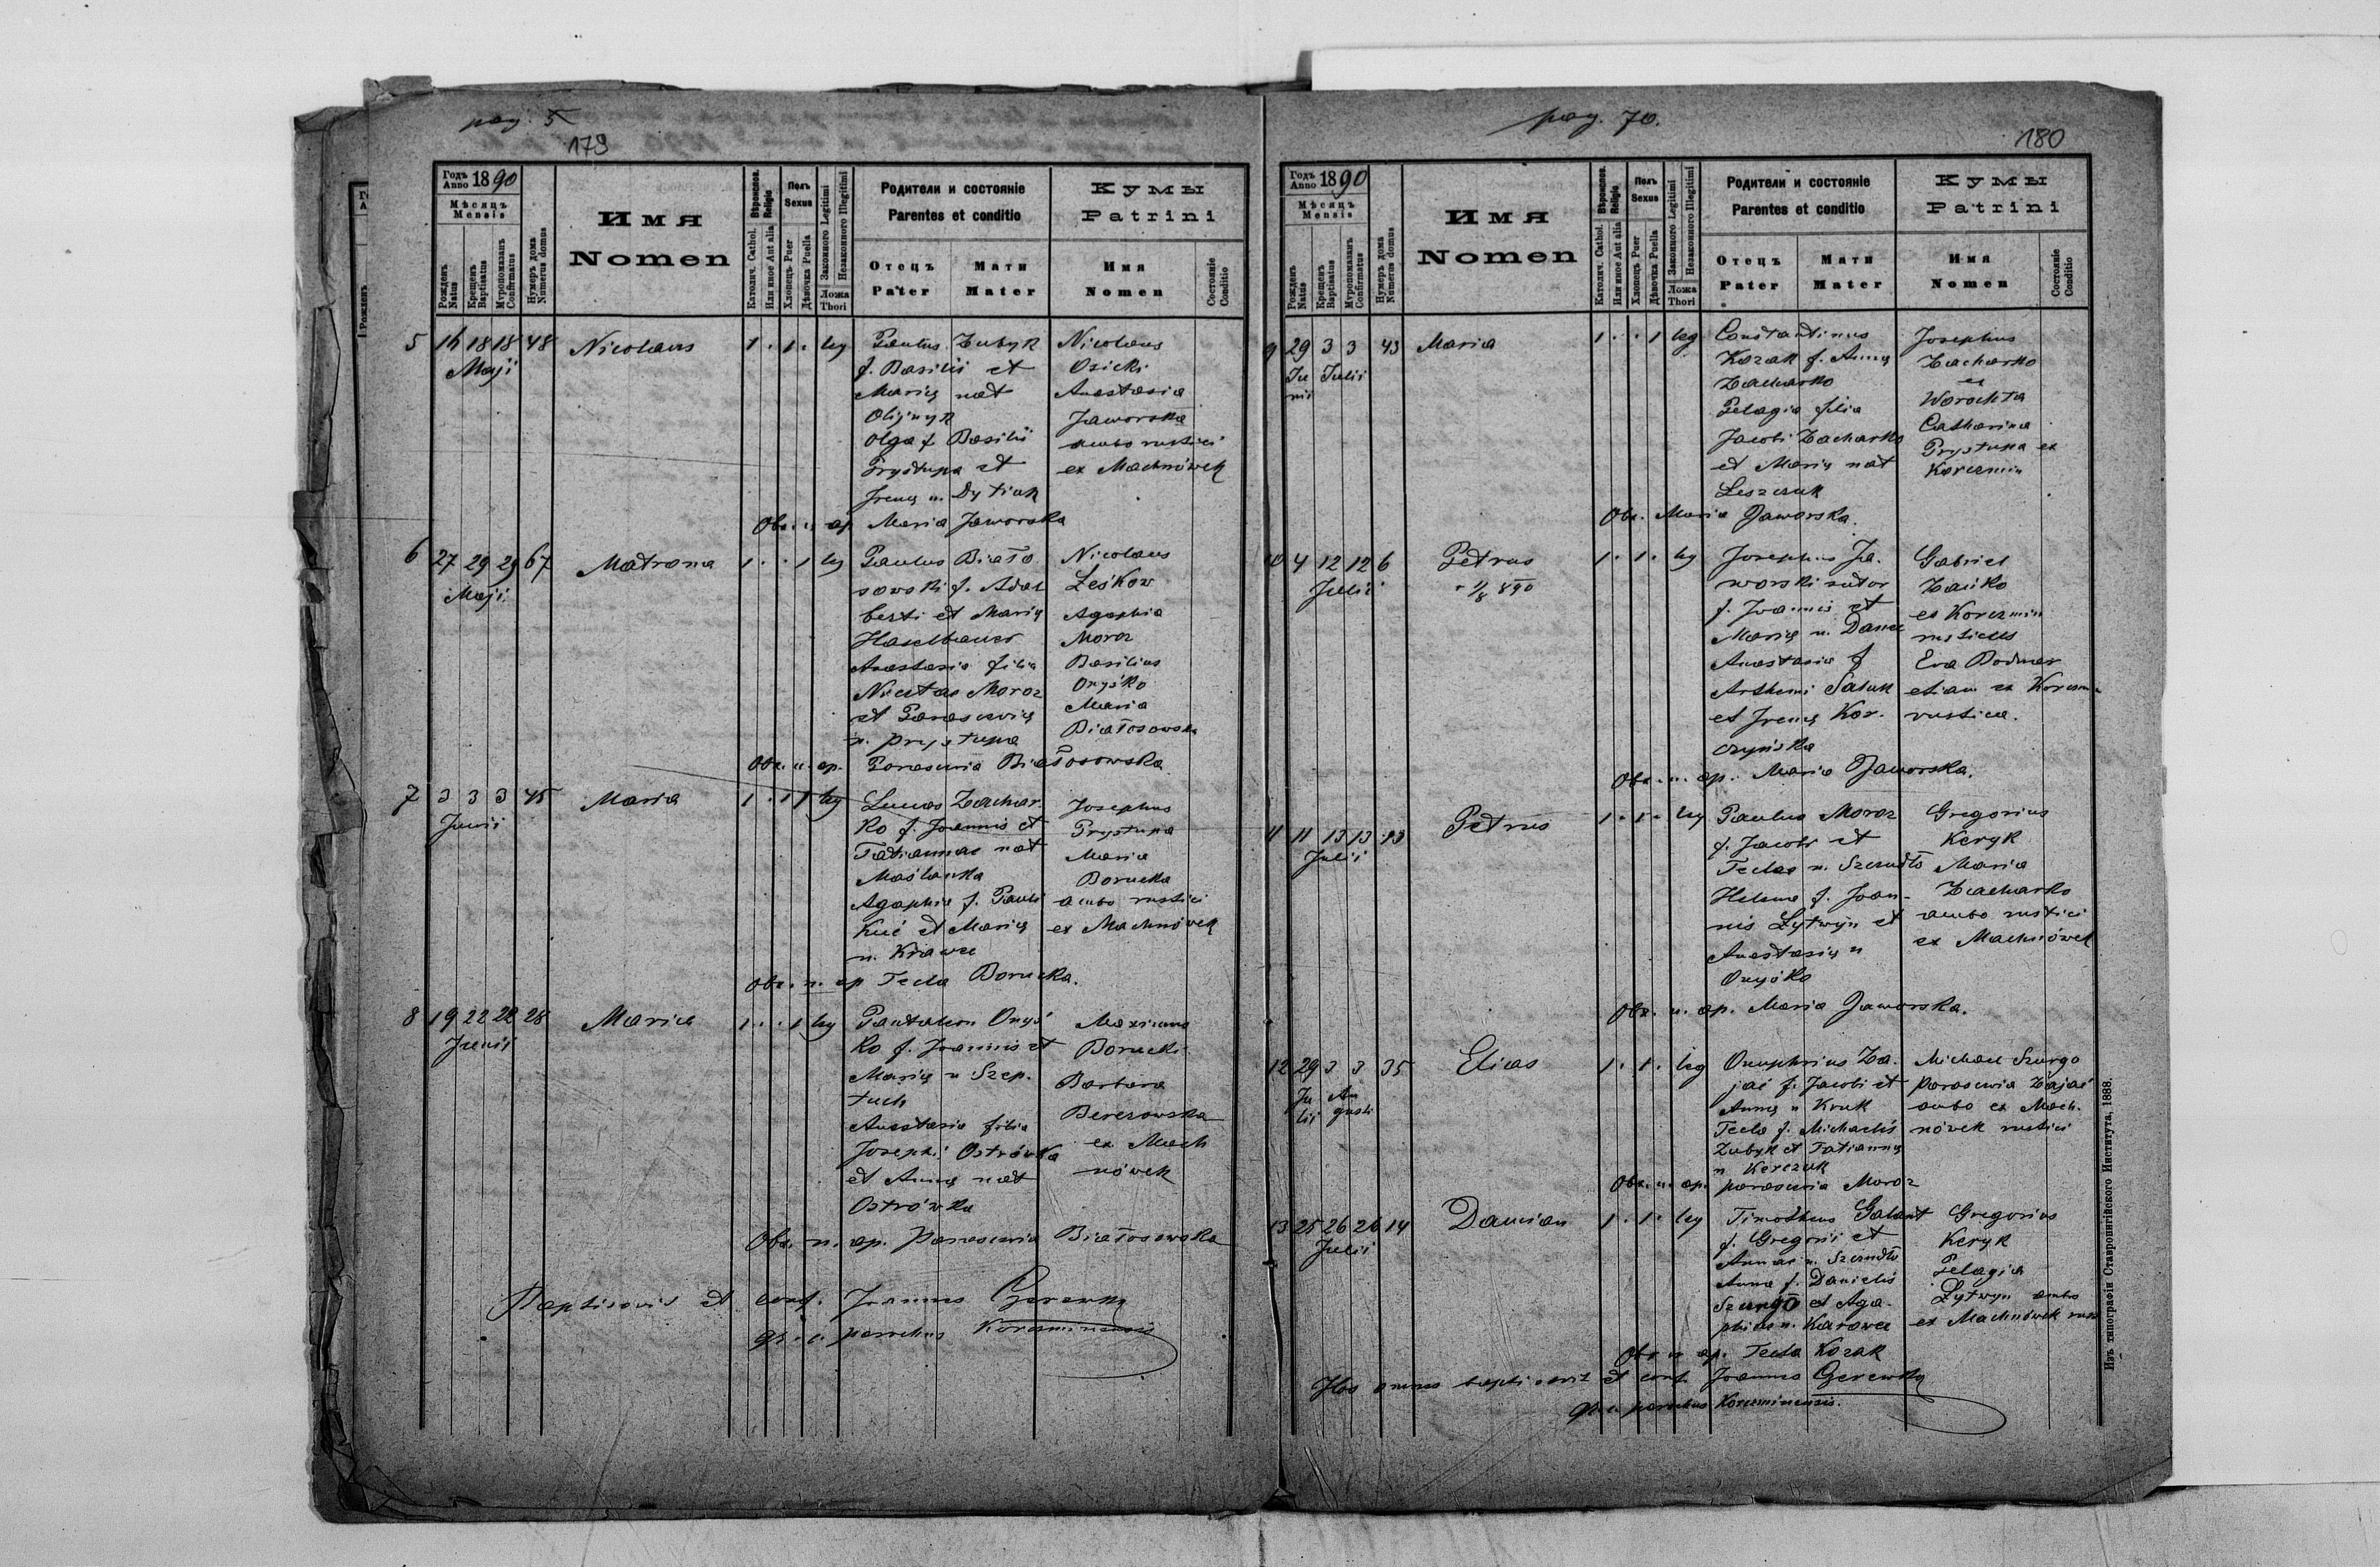 pag. 5
179
Годъ Anno 1890
Мѣсяцъ Mensis
Рожденъ Natus
Крещенъ Baptisatus
Мѵропомазанъ Confirmatus
Нумеръ дома Numerus domus
Имя
Nomen
Вѣроиспов. Religio
Католич. Cathol.
Или иное Aut alia
Полъ Sexus
Хлопецъ Puer
Дѣвочка Puella
Законного Legitimi
Незаконного Illegitimi
Ложа Thori
Родители и состояніе
Parentes et conditio
Отецъ Pater
Мати Mater
Кумы
Patrini
Имя Nomen
Состояніе Conditio
5 16 18 18 48 Nicolaus 1 . 1 . leg
Maji
Paulus Zubyk
f. Basilii et
Marię nat
Olijnyk
Olga f. Basilii
Prystupa et
Irenę n. Dytiuk
Nicolaus
Osicki
Anastasia
Jaworska
ambo rustici
ex Machnówek
Obs. n. ap. Maria Jaworska
6 27 29 29 67 Matrona 1 . . 1 leg
Maji
Paulus Biało
sowski f. Adal
berti et Marię
Haselbauer
Anastasia filia
Nicetae Moroz
et Parascevię
n. Prystupa
Nicolaus
Leśkow
Agaphia
Moroz
Basilius
Onyśko
Maria
Białosowska
Obs. n. ap. Parascevia Białosowska
7 3 3 3 45 Maria 1 . 1 1 leg
Junii
Lucas Zachar
ko f. Joannis et
Tatiannae nat
Maślanka
Agaphia f. Pauli
Kuć et Marię
n. Krawec
Josephus
Prystupa
Maria
Borucka
ambo rustici
ex Machnówek
Obs. n. ap Tecla Borucka.
8 19 22 22 28 Maria 1 . . 1 leg
Junii
Pantaleon Onyś
ko f. Joannis et
Marię n Szep.
tuch
Anastasia filia
Josephi Ostrówka
et Annę nat
Ostrówka
Maximus
Borucki
Barbara
Berezowska
ex Mach
nówek
Obs. n. ap. Parascevia Białosowska
Baptisavit et conf. Joannes
gr. c. parochus Korczminensis
pag. 70.
180
Годъ Anno 1890
Мѣсяцъ Mensis
Рожденъ Natus
Крещенъ Baptisatus
Мѵропомазанъ Confirmatus
Нумеръ дома Numerus domus
Имя
Nomen
Вѣроиспов. Religio
Католич. Cathol.
Или иное Aut alia
Полъ Sexus
Хлопецъ Puer
Дѣвочка Puella
Законного Legitimi
Незаконного Illegitimi
Ложа Thori
Родители и состояніе
Parentes et conditio
Отецъ Pater
Мати Mater
Кумы
Patrini
Имя Nomen
Состояніе Conditio
9 29 3 3 43 Maria 1 . . 1 leg
Ju Julii
nii
Constantinus
Kozak f. Annę
Zacharko
Pelagia filia
Jacobi Zacharko
et Marię nat
Leszczuk
Josephus
Zacharko
ex
Worochta
Catharina
Prystupa ex
Korczmin
Obs. Maria Jaworska.
10 4 12 12 6 Petrus 1 . 1 . leg
Julii
+ 1/8 890
Josephus Ja.
worski sutor
f. Joannis et
Marię n. Dance
Anastasia f
Arthemi Saluk
et Irenę Kor.
czyńska
Gabriel
Zańko
ex Korczmin
rusticus
Eva Bodnar
etiam ex Korczm
rustica.
Obs. n. ap. Maria Jaworska.
11 11 13 13 13 Petrus 1 . 1 . leg
Julii
Paulus Moroz
f. Jacobi et
Teclae n. Szczudło
Helena f. Joan-
nis Lytwyn et
Anastasię n
Onyśko
Gregorius
Keryk
Maria
Zacharko
ambo rustici
ex Machnówek
Obs. n. ap. Maria Jaworska.
12 29 3 3 35 Elias 1 . 1 . leg
Ju Au
lii gusti
Onuphrius Za.
jać f. Jacobi et
Annę n Kruk
Tecla f. Michaelis
Zubyk et Tatiannę
n Kerczuk
Michael Szurgo
Parascevia Zajać
ambo ex Mach.
nówek rustici
Obs. n. ap. Parascevia Moroz
13 25 26 26 14 Damian 1 . 1 . leg
Julii
Timotheus Galant
f. Gregorii et
Annae n. Szczudło
Anna f. Danielis
et Aga.
phiae n. Karawec
Gregorius
Keryk
Pelagia
Lytwyn ambo
ex Machnówek rust
Obs n ap. Tecla Kozak
Hos omnes baptisavit et conf. Joannes
gr. c. parochus Korczminensis.
Изъ типографіи Ставропигійского Института, 1888.